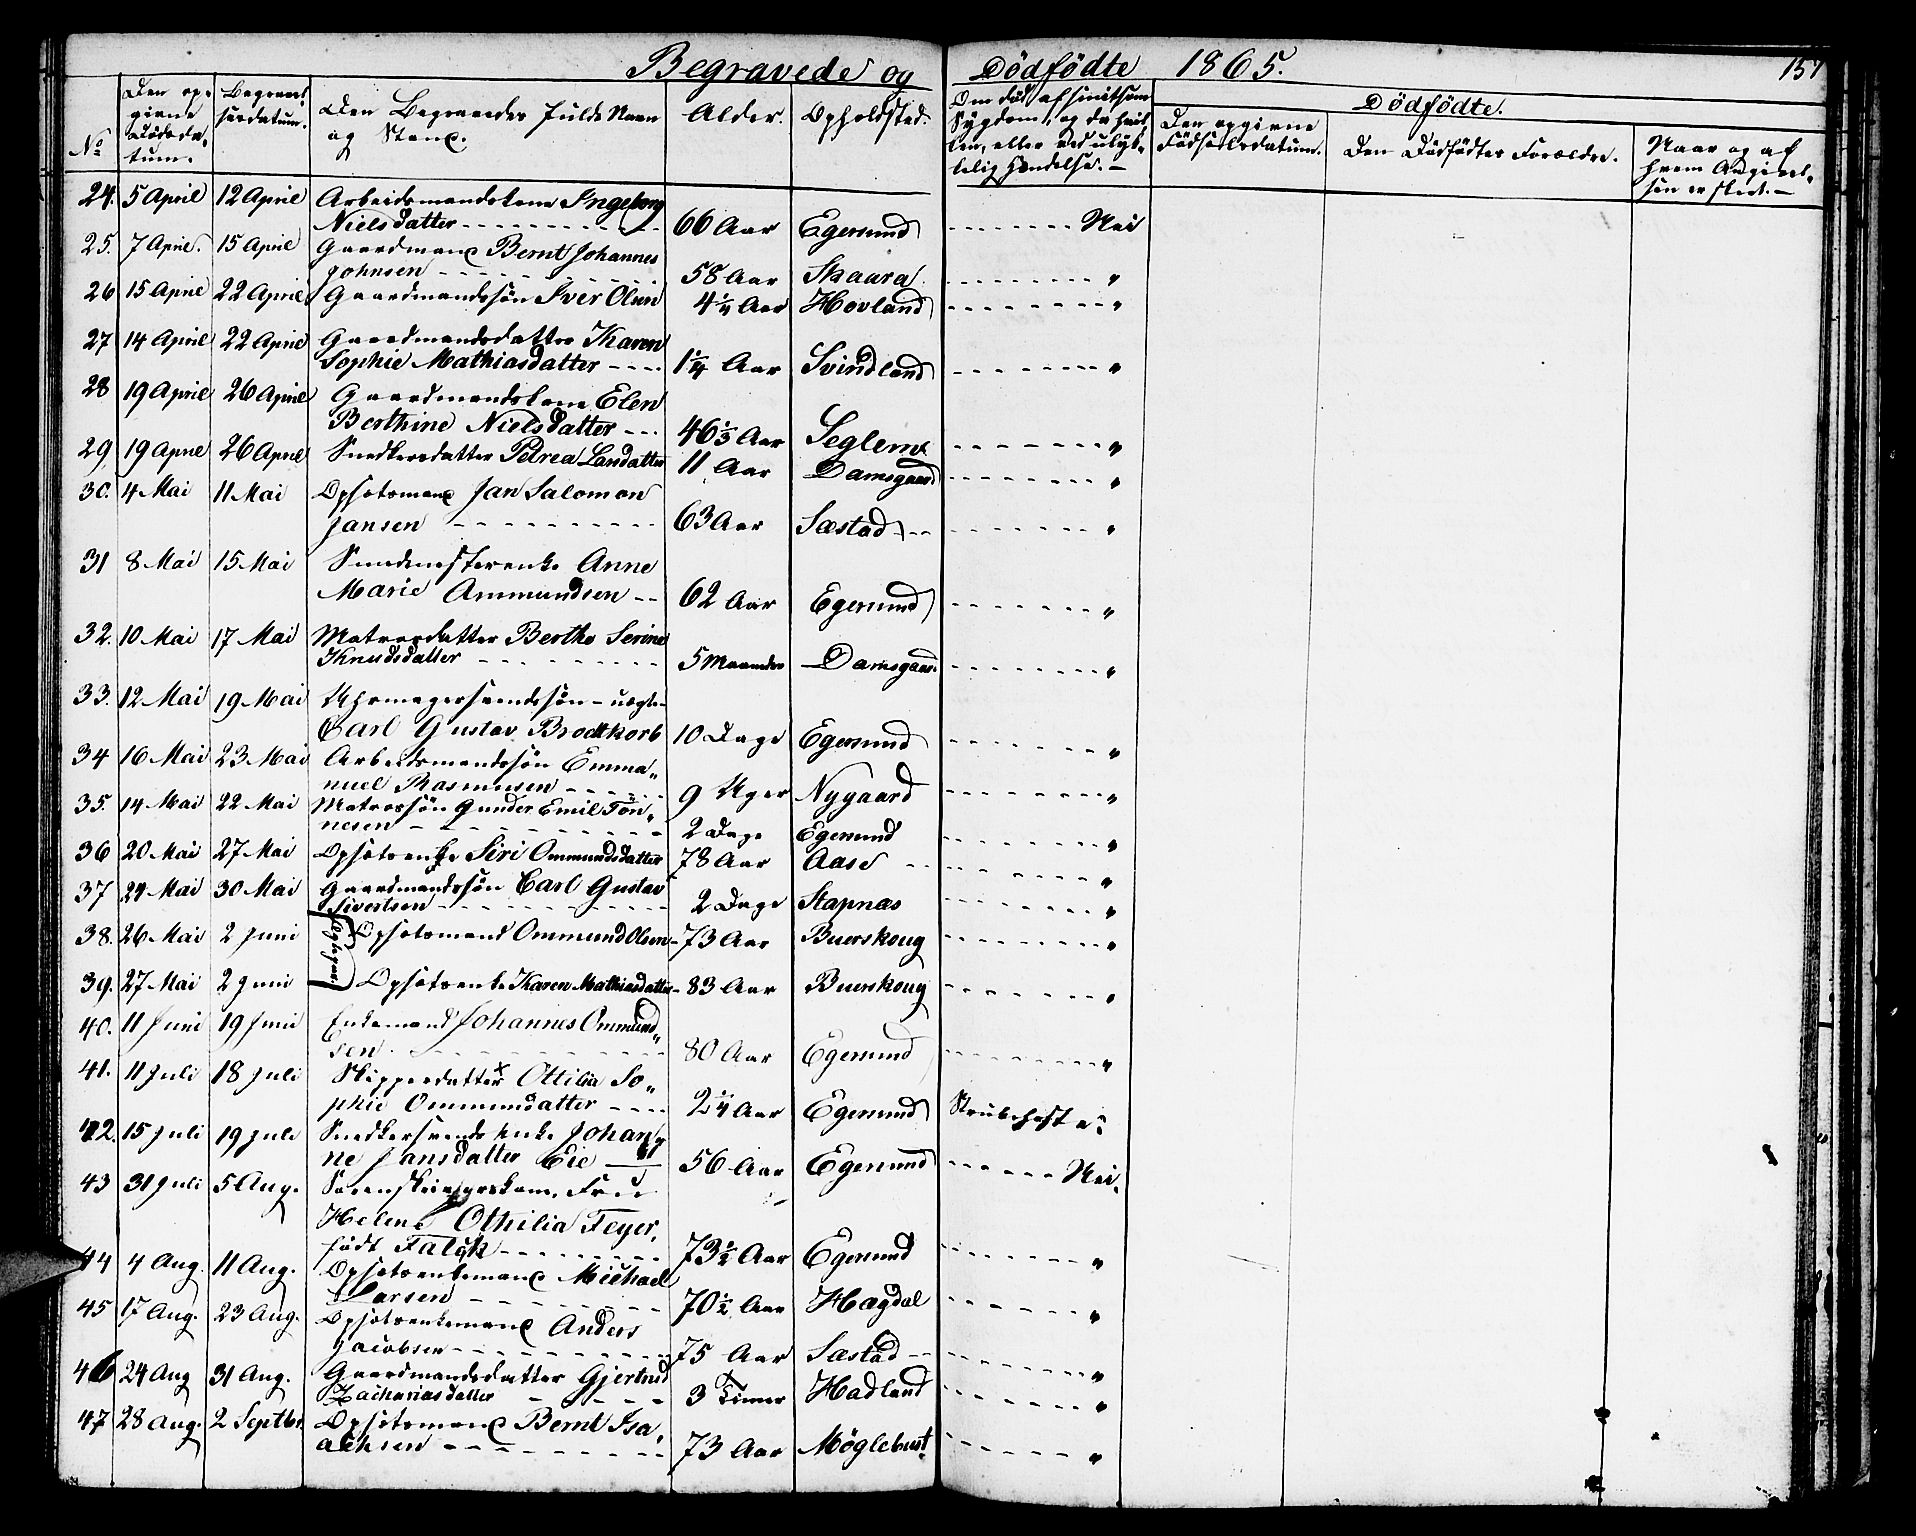 Begravede og Dödfödte 1865. 157
No
Den op-
givne
Dödsda-
tum.
Begravel-
sesdatum.
Den Begravedes fulde Navn
og Stand.
Alder.
Opholdsted.
Om död af smitsom
Sygdom, og da hvil-
ken, eller ved ulyk-
kelig Hendelse. —
Dödfödte.
Den opgivne
Födselsdatum.
Den Dödfödtes Forældre.
Naar og af
hvem Angivel-
sen er skeet. —
24. 5 April 12 April Arbeidsmandskone Ingeborg
Nielsdatter 66 Aar Egersund Nei
25. 7 April. 15 April Gaardmand Bernt Johannes
Johnsen 58 Aar Skaara "
26 15 April 22 April Gaardmandssön Iver Olsen 4 1/4 Aar Hovland "
27 14 April 22 April Gaardmandsdatter Karen
Sophie Mathiasdatter 1 1/4 Aar Svindland "
28 19 April 26 April Gaardmandskone Elen
Berthine Nielsdatter 46 1/3 Aar Seglem "
29 19 April 26 April Snedkersdatter Petrea Larsdatter 11 Aar Damsgaard "
30. 4 Mai 11 Mai Opsötsmand Jan Salomon
Jansen 63 Aar Sæstad "
31 8 Mai 15 Mai Smedmesterenke Anne
Marie Ommundsen 62 Aar Egersund "
32. 10 Mai 17 Mai Matrosdatter Berthe Serine
Knudsdatter 5 Maaneder Damsgaard "
33. 12 Mai 19 Mai Uhrmagersvendssön - uægte
Carl Gustav Brodtkorb 10 Dage Egersund "
34 16 Mai 23 Mai Arbeidsmandssön Emma-
nuel Rasmusen 9 Uger Nygaard "
35. 14 Mai 22 Mai Matrossön Gunder Emil Tön-
nesen 2 Dage Egersund "
36 20 Mai 27 Mai Opsötsenke Siri Ommundsdatter 78 Aar Aase "
37 24 Mai 30 Mai Gaardmandssön Carl Gustav
Sivertsen 2 Dage Stapnæs "
38. 26 Mai 2 Juni Opsötsmand Ommund Olsen 73 Aar Buerskoug "
39. 27 Mai 2 Juni Opsötsenke Karen Mathiasdatter 83 Aar Buerskoug "
40. 11 Juni 19 Juni Enkemand Johannes Ommund-
sen 80 Aar Egersund "
41. 11 Juli 18 Juli Skipperdatter Ottilia So-
phie Ommundatter 2 1/4 Aar Egersund Strubehoste
42. 15 Juli 19 Juli Snedkersvends Enke Johan-
ne Jansdatter Eie 56 Aar Egersund Nei.
43 31 Juli 5 Aug. Sorenskriverskom. Frue
Helene Othilia Feyer,
födt Falck 73 1/2 Aar Egersund "
44 4 Aug. 11 Aug. Opsötsenkemand Michael
Larsen 70 1/2 Aar Hægdal "
45 17 Aug. 23 Aug. Opsötsenkemand Anders
Jacobsen 75 Aar Sæstad "
46 24 Aug 31 Aug. Gaardmandsdatter Gjertrud
Zachariasdatter 3 Timer Hadland "
47 28 Aug. 2 Septbr. Opsötsmand Bernt Isa-
achsen 73 Aar Möglebust "